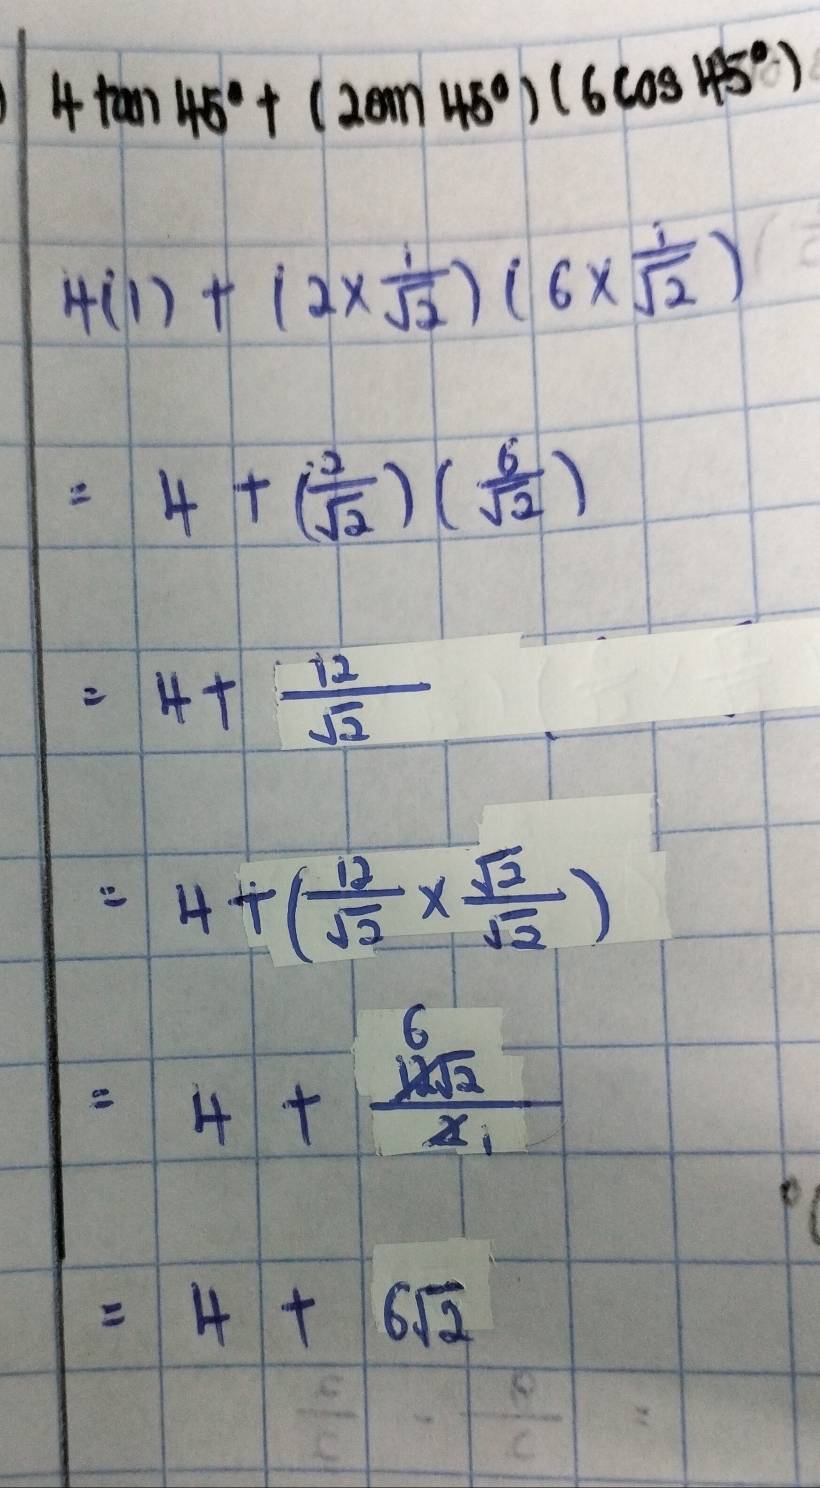 4 tan 45° + (2sin 45°)(6 cos 45°)
4(1) + (2 × 1/√2)(6 × 1/√2)
= 4 + (2/√2)(6/√2)
= 4 + 12/√2
= 4 + (12/√2 × √2/√2)
6
= 4 + 12√2/2 1
= 4 + 6√2